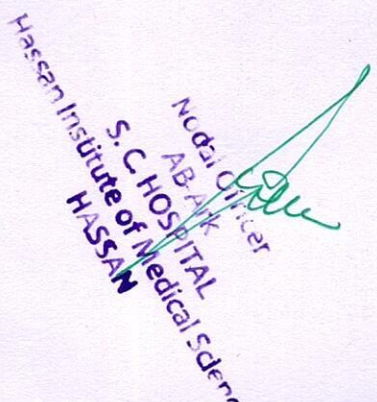 Nodal Officer
AB-Ark
S. C. HOSPITAL
Hassan Institute of Medical Scien
HASSAN